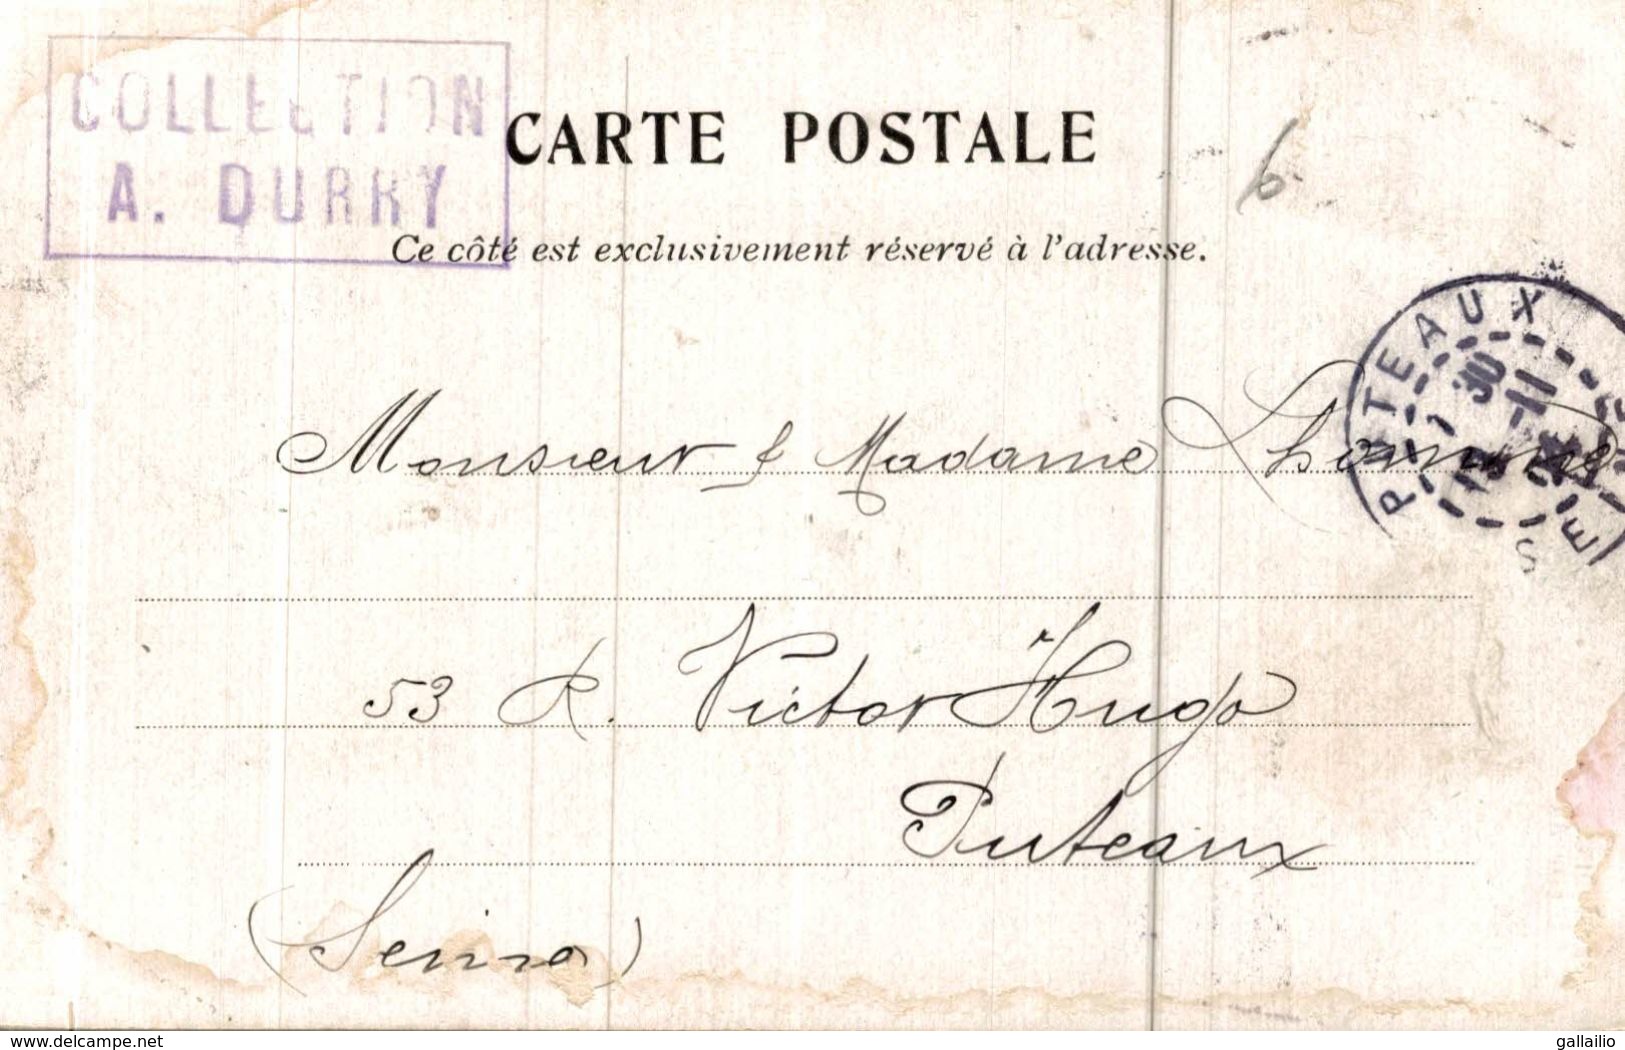 COLLECTION
A. DURRY
CARTE POSTALE
6
Ce côté est exclusivement réservé à l'adresse.
PUTEAUX
30
-11
SE
Monsieur & Madame Lhomme
53 R. Victor Hugo
Puteaux
(Seine)
www.delcampe.net
gallailio